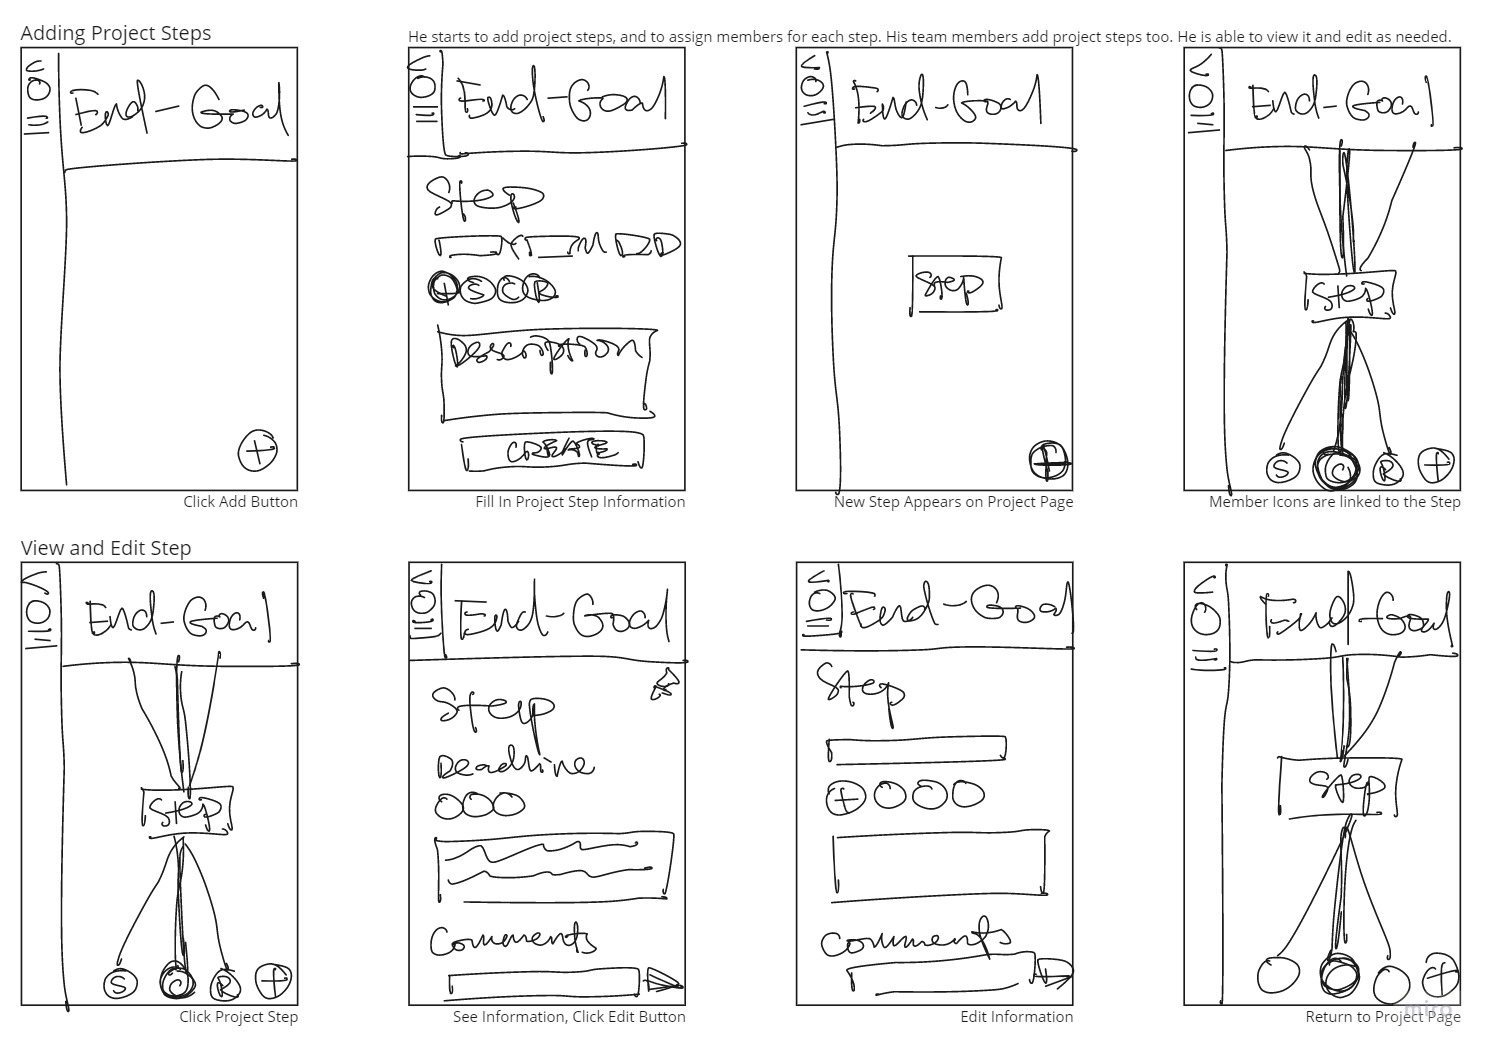 Adding Project Steps
He starts to add project steps, and to assign members for each step. His team members add project steps too. He is able to view it and edit as needed.
End-Goal
+
Click Add Button
End-Goal
Step
+ S C R
Description
CREATE
Fill In Project Step Information
End-Goal
Step
+
New Step Appears on Project Page
End-Goal
Step
S C R +
Member Icons are linked to the Step
View and Edit Step
End-Goal
Step
S C R +
Click Project Step
End-Goal
Step
Deadline
Comments
See Information, Click Edit Button
End-Goal
Step
+
Comments
Edit Information
End-Goal
Step
+
miro
Return to Project Page